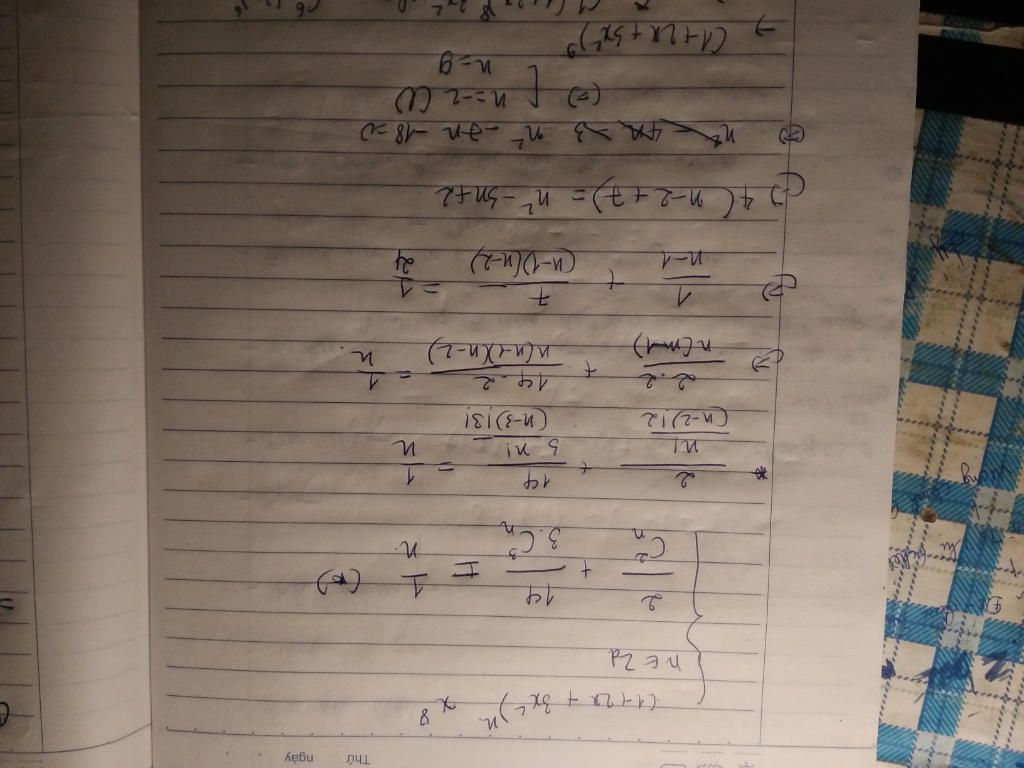 Thứ ngày
(1+2x+3x²)ⁿ x⁸
n ∈ Zd
2/C²ₙ + 14/3.C³ₙ = 1/n (*)
* 2/(n!/(n-2)!2) + 14/(3n!/(n-3)!3!) = 1/n
⇔ 2.2/n(n-1) + 14.2/n(n-1)(n-2) = 1/n
⇔ 1/n-1 + 7/(n-1)(n-2) = 1/24
⇔ 4(n-2+7) = n²-3n+2
⇔ n²-7n-18=0
⇔ [ n=-2 (l)
n=9
→ (1+2x+3x²)⁹